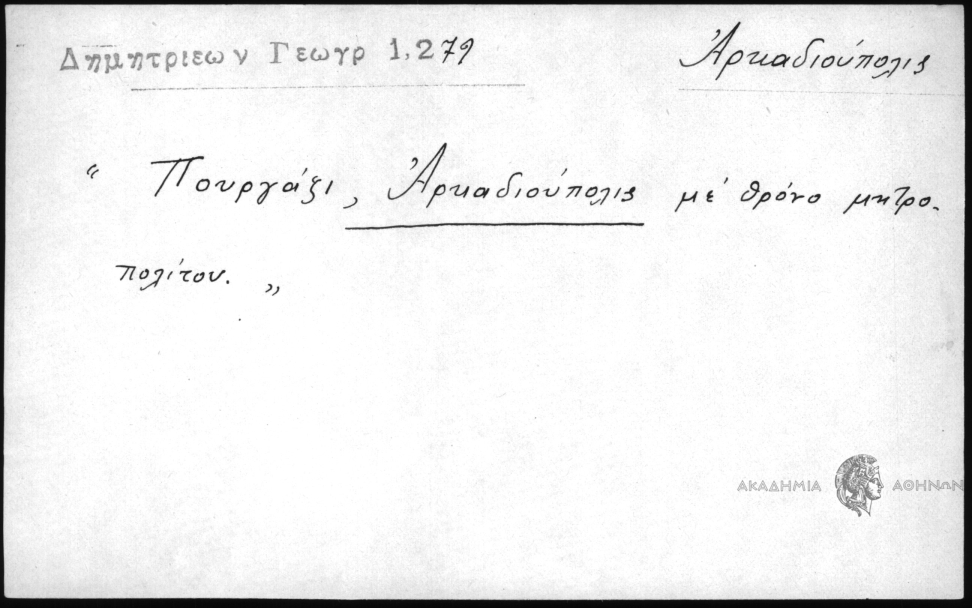 Δημητριεων Γεωγρ 1,279
Ἀρκαδιούπολις
“ Πουργάζι, Ἀρκαδιούπολις μέ θρόνο μητρο-
πολίτου. „
ΑΚΑΔΗΜΙΑ ΑΘΗΝΩΝ